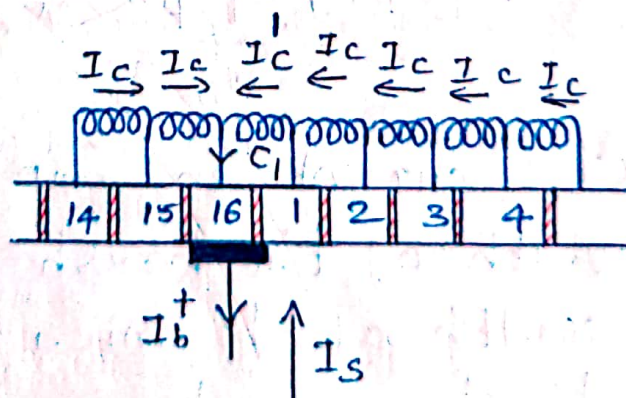 1
Ic Ic Ic Ic Ic Ic Ic
C1
14 15 16 1 2 3 4
+
Ib Is